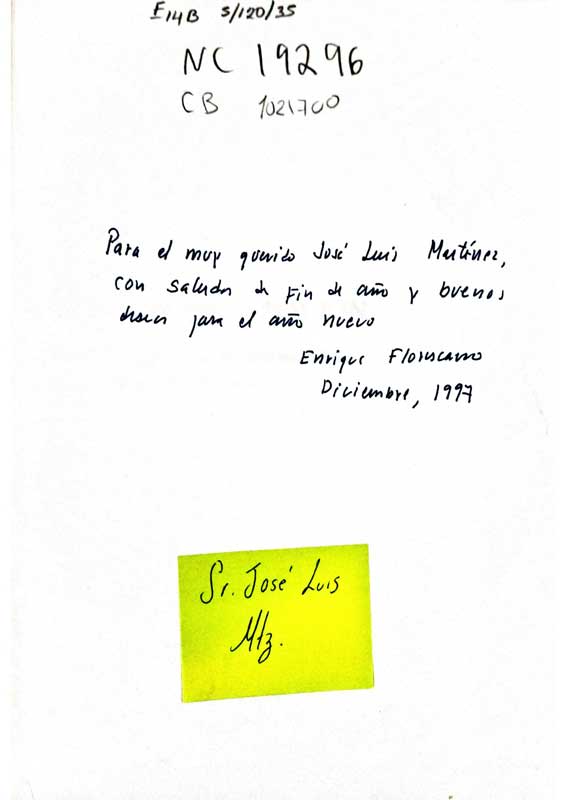 E14B S/120/35
NC 19296
CB 1021700
Para el muy querido José Luis Martínez,
con saludos de fin de año y buenos
deseos para el año nuevo
Enrique Florescano
Diciembre, 1997
Sr. José Luis
Mtz.